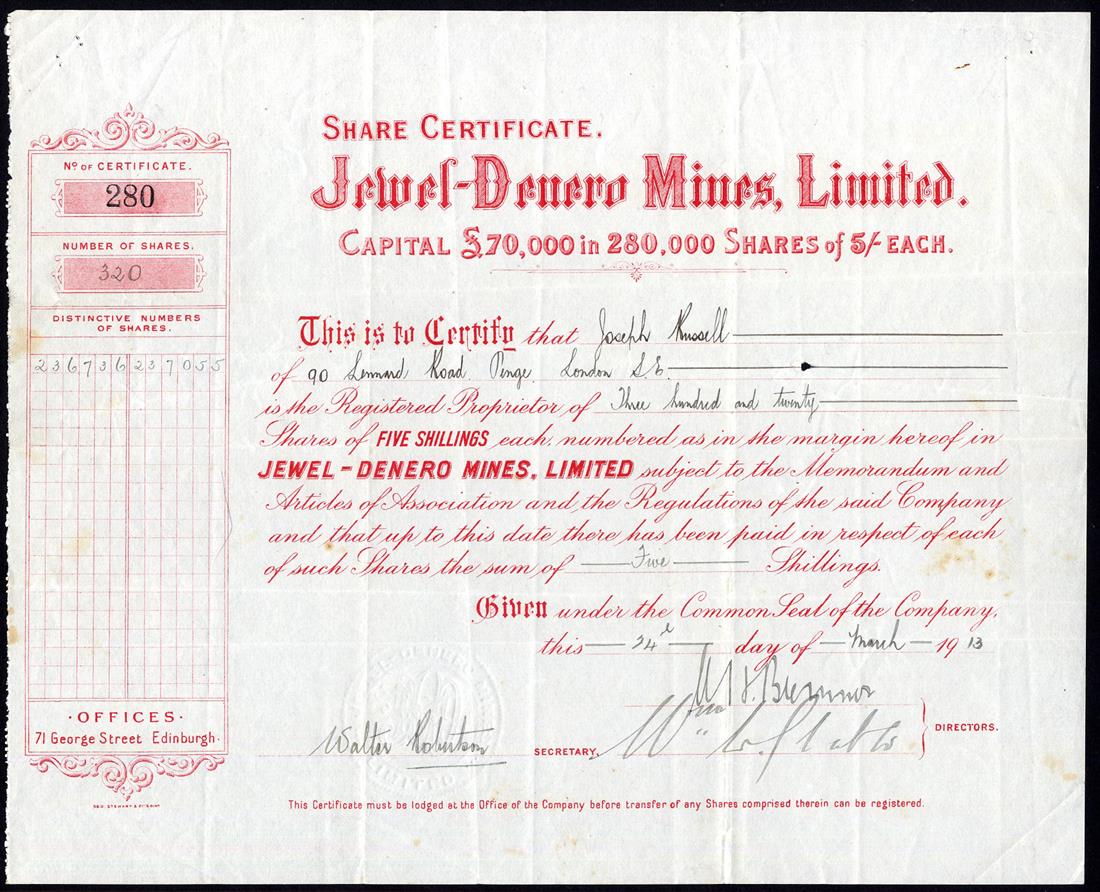 SHARE CERTIFICATE.
Jewel-Denero Mines, Limited.
CAPITAL £70,000 in 280,000 SHARES of 5/- EACH.
No OF CERTIFICATE.
280
NUMBER OF SHARES.
320
DISTINCTIVE NUMBERS
OF SHARES.
236736 237055
This is to Certify that Joseph Russell
of 90 Lennard Road Penge London S.E.
is the Registered Proprietor of Three hundred and twenty
Shares of FIVE SHILLINGS each, numbered as in the margin hereof in
JEWEL-DENERO MINES, LIMITED subject to the Memorandum and
Articles of Association and the Regulations of the said Company
and that up to this date there has been paid in respect of each
of such Shares the sum of Five Shillings.
Given under the Common Seal of the Company,
this 24th day of March 1913
Bremner
Walter Robertson SECRETARY. DIRECTORS.
· OFFICES ·
71 George Street Edinburgh.
This Certificate must be lodged at the Office of the Company before transfer of any Shares comprised therein can be registered.